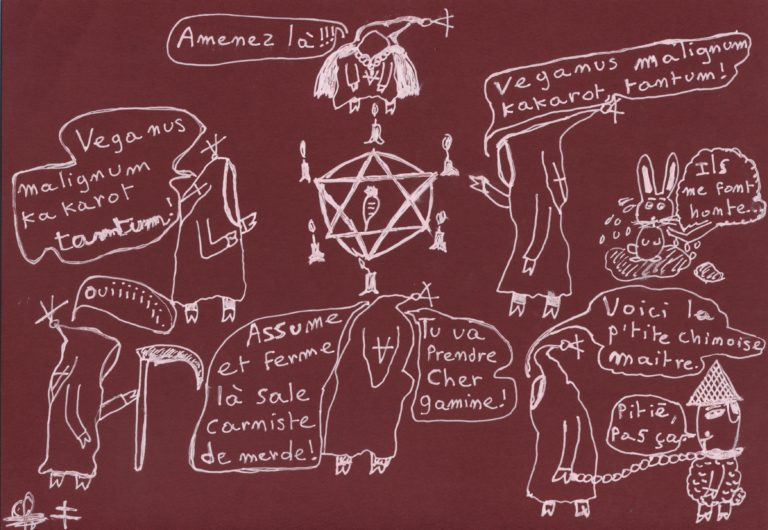 Amenez là!!!
Veganus malignum
kakarot tantum!
Veganus
malignum
kakarot
tantum!
Ils
me font
honte...
ouiiiiiii
Assume
et ferme
là sale
carniste
de merde!
Tu va
Prendre
Cher
gamine!
Voici la
p'tite chinoise
maitre.
Pitié,
pas ça.